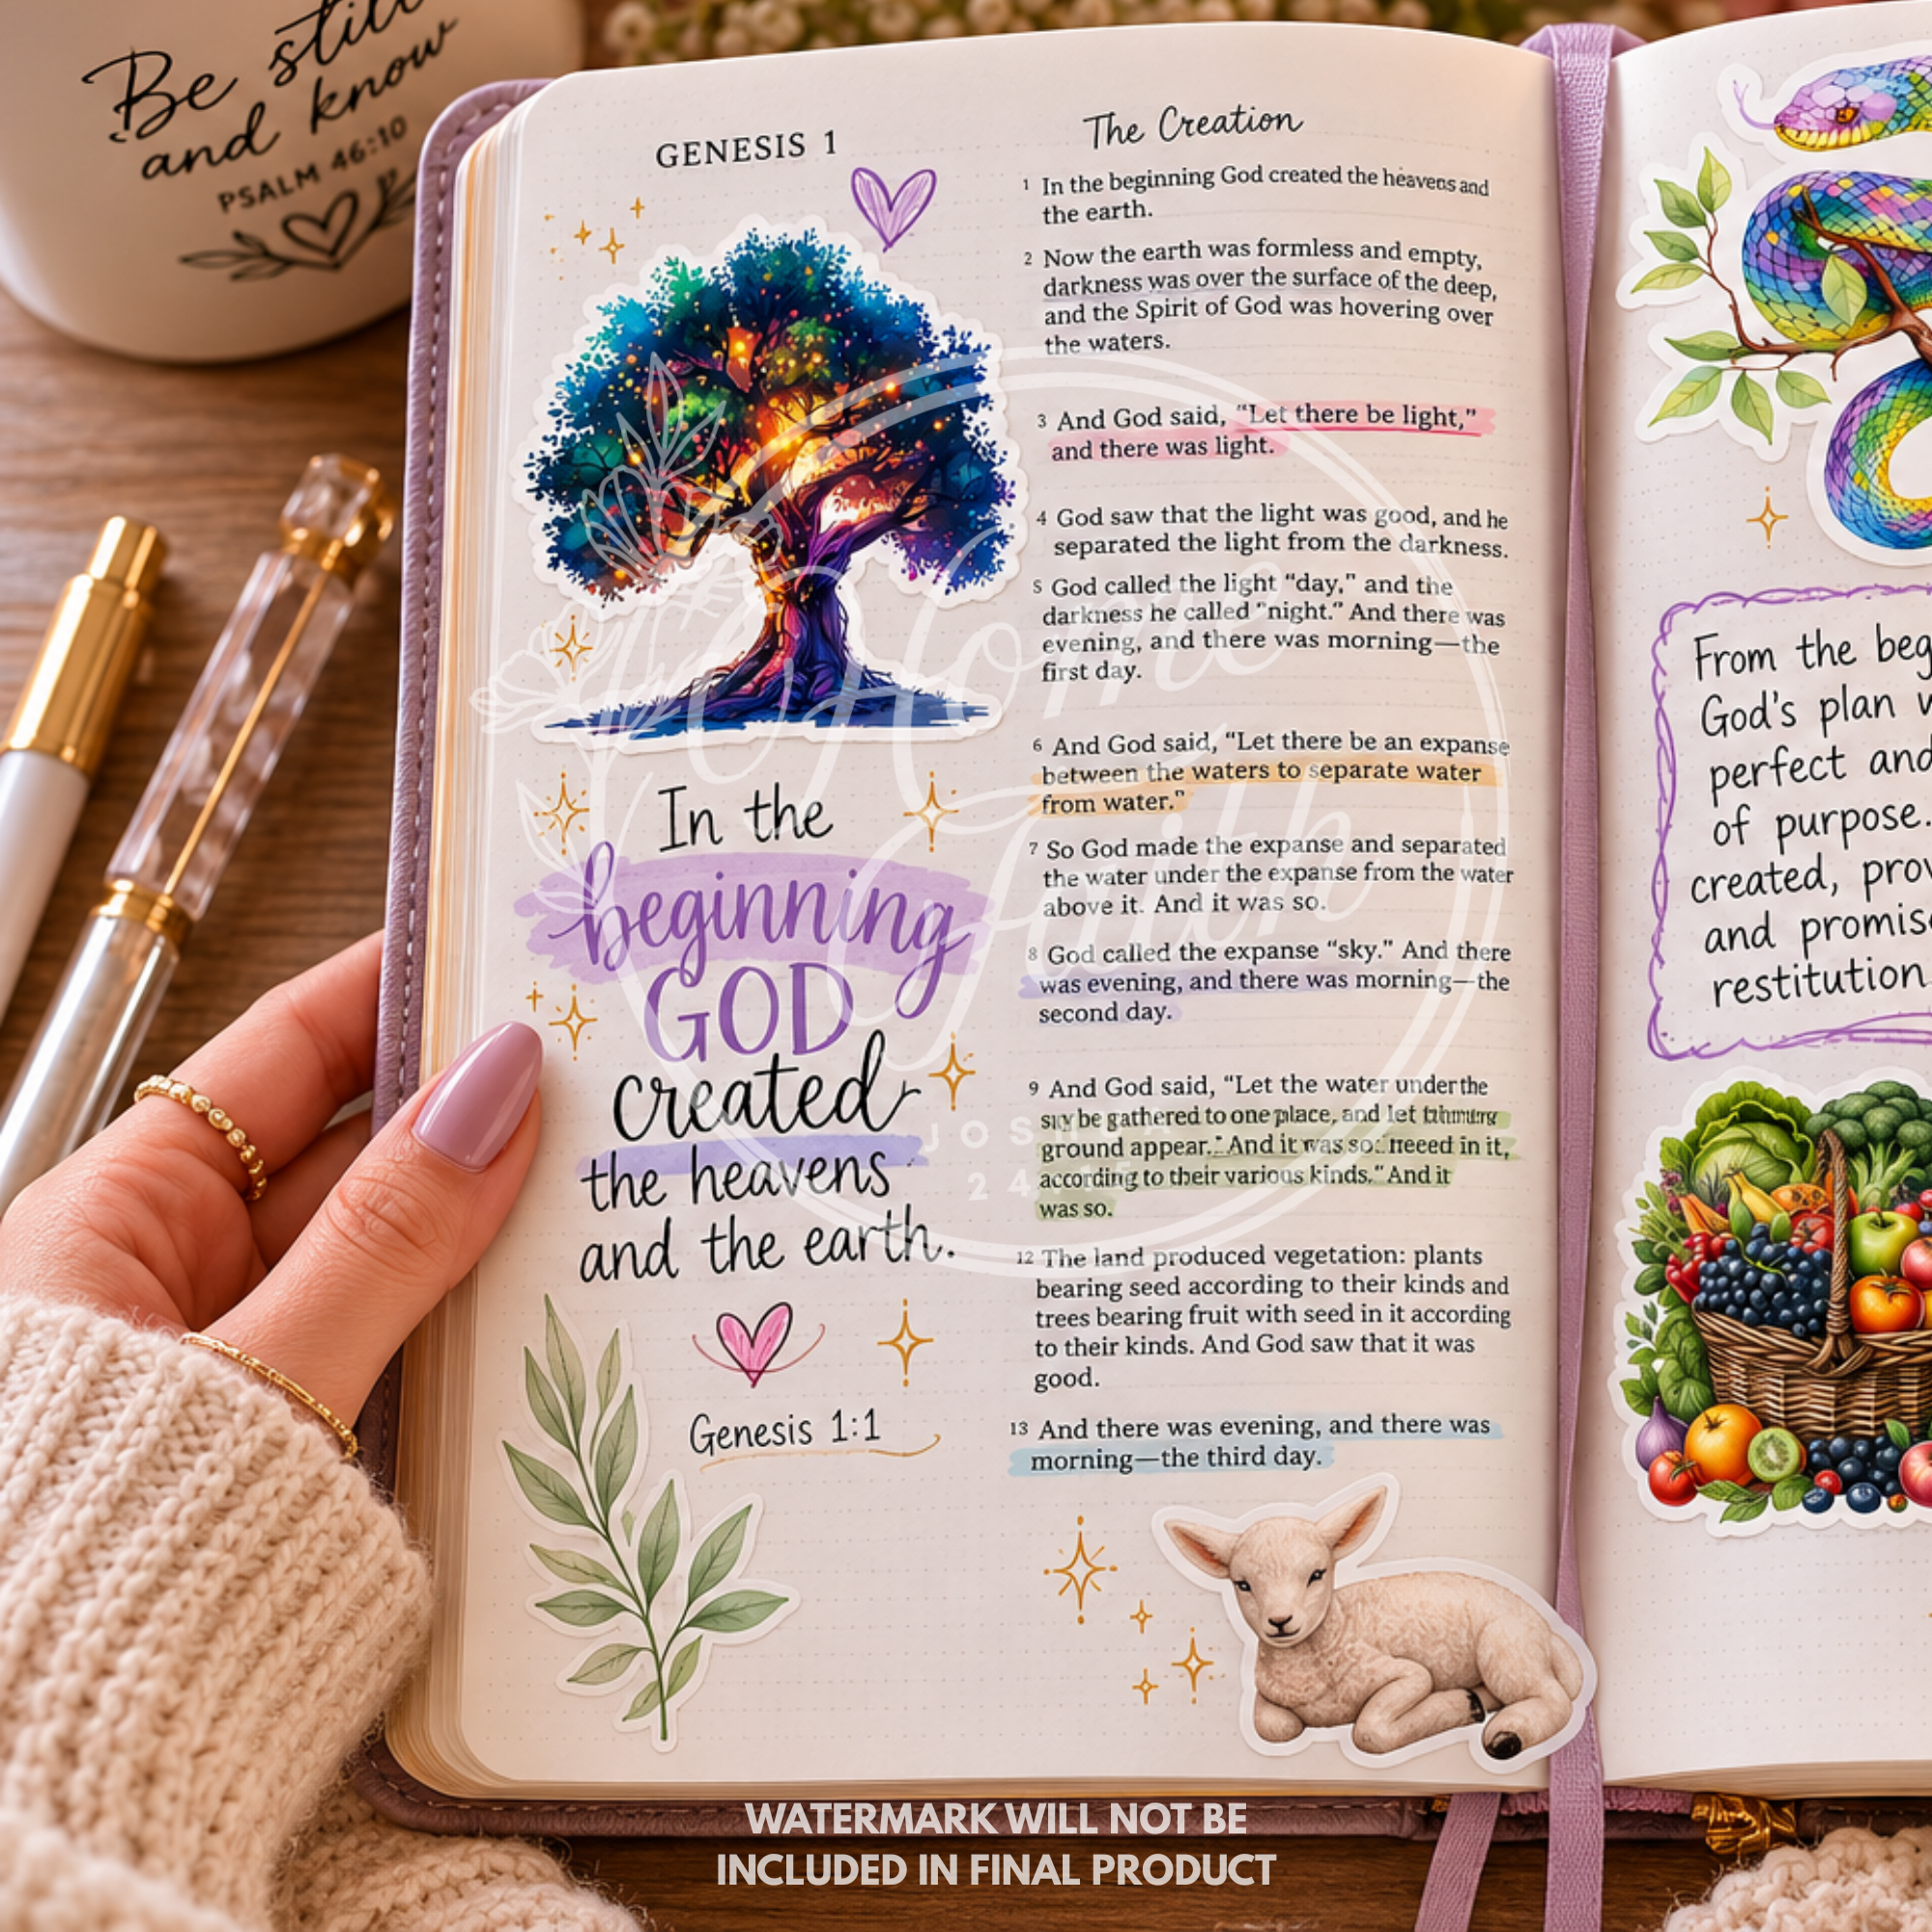 Be still
and know
PSALM 46:10
GENESIS 1
In the
beginning
GOD
created
the heavens
and the earth.
Genesis 1:1
The Creation
1 In the beginning God created the heavens and
the earth.
2 Now the earth was formless and empty,
darkness was over the surface of the deep,
and the Spirit of God was hovering over
the waters.
3 And God said, “Let there be light,”
and there was light.
4 God saw that the light was good, and he
separated the light from the darkness.
5 God called the light “day,” and the
darkness he called “night.” And there was
evening, and there was morning—the
first day.
6 And God said, “Let there be an expanse
between the waters to separate water
from water.”
7 So God made the expanse and separated
the water under the expanse from the water
above it. And it was so.
8 God called the expanse “sky.” And there
was evening, and there was morning—the
second day.
9 And God said, “Let the water under the
be gathered to one place, and let
ground appear.” And it was so: in it,
according to their various kinds.” And it
was so.
12 The land produced vegetation: plants
bearing seed according to their kinds and
trees bearing fruit with seed in it according
to their kinds. And God saw that it was
good.
13 And there was evening, and there was
morning—the third day.
From the beg
God's plan w
perfect and
of purpose.
created, prov
and promis
restitution
Home
Faith
JOSH
24:
WATERMARK WILL NOT BE
INCLUDED IN FINAL PRODUCT